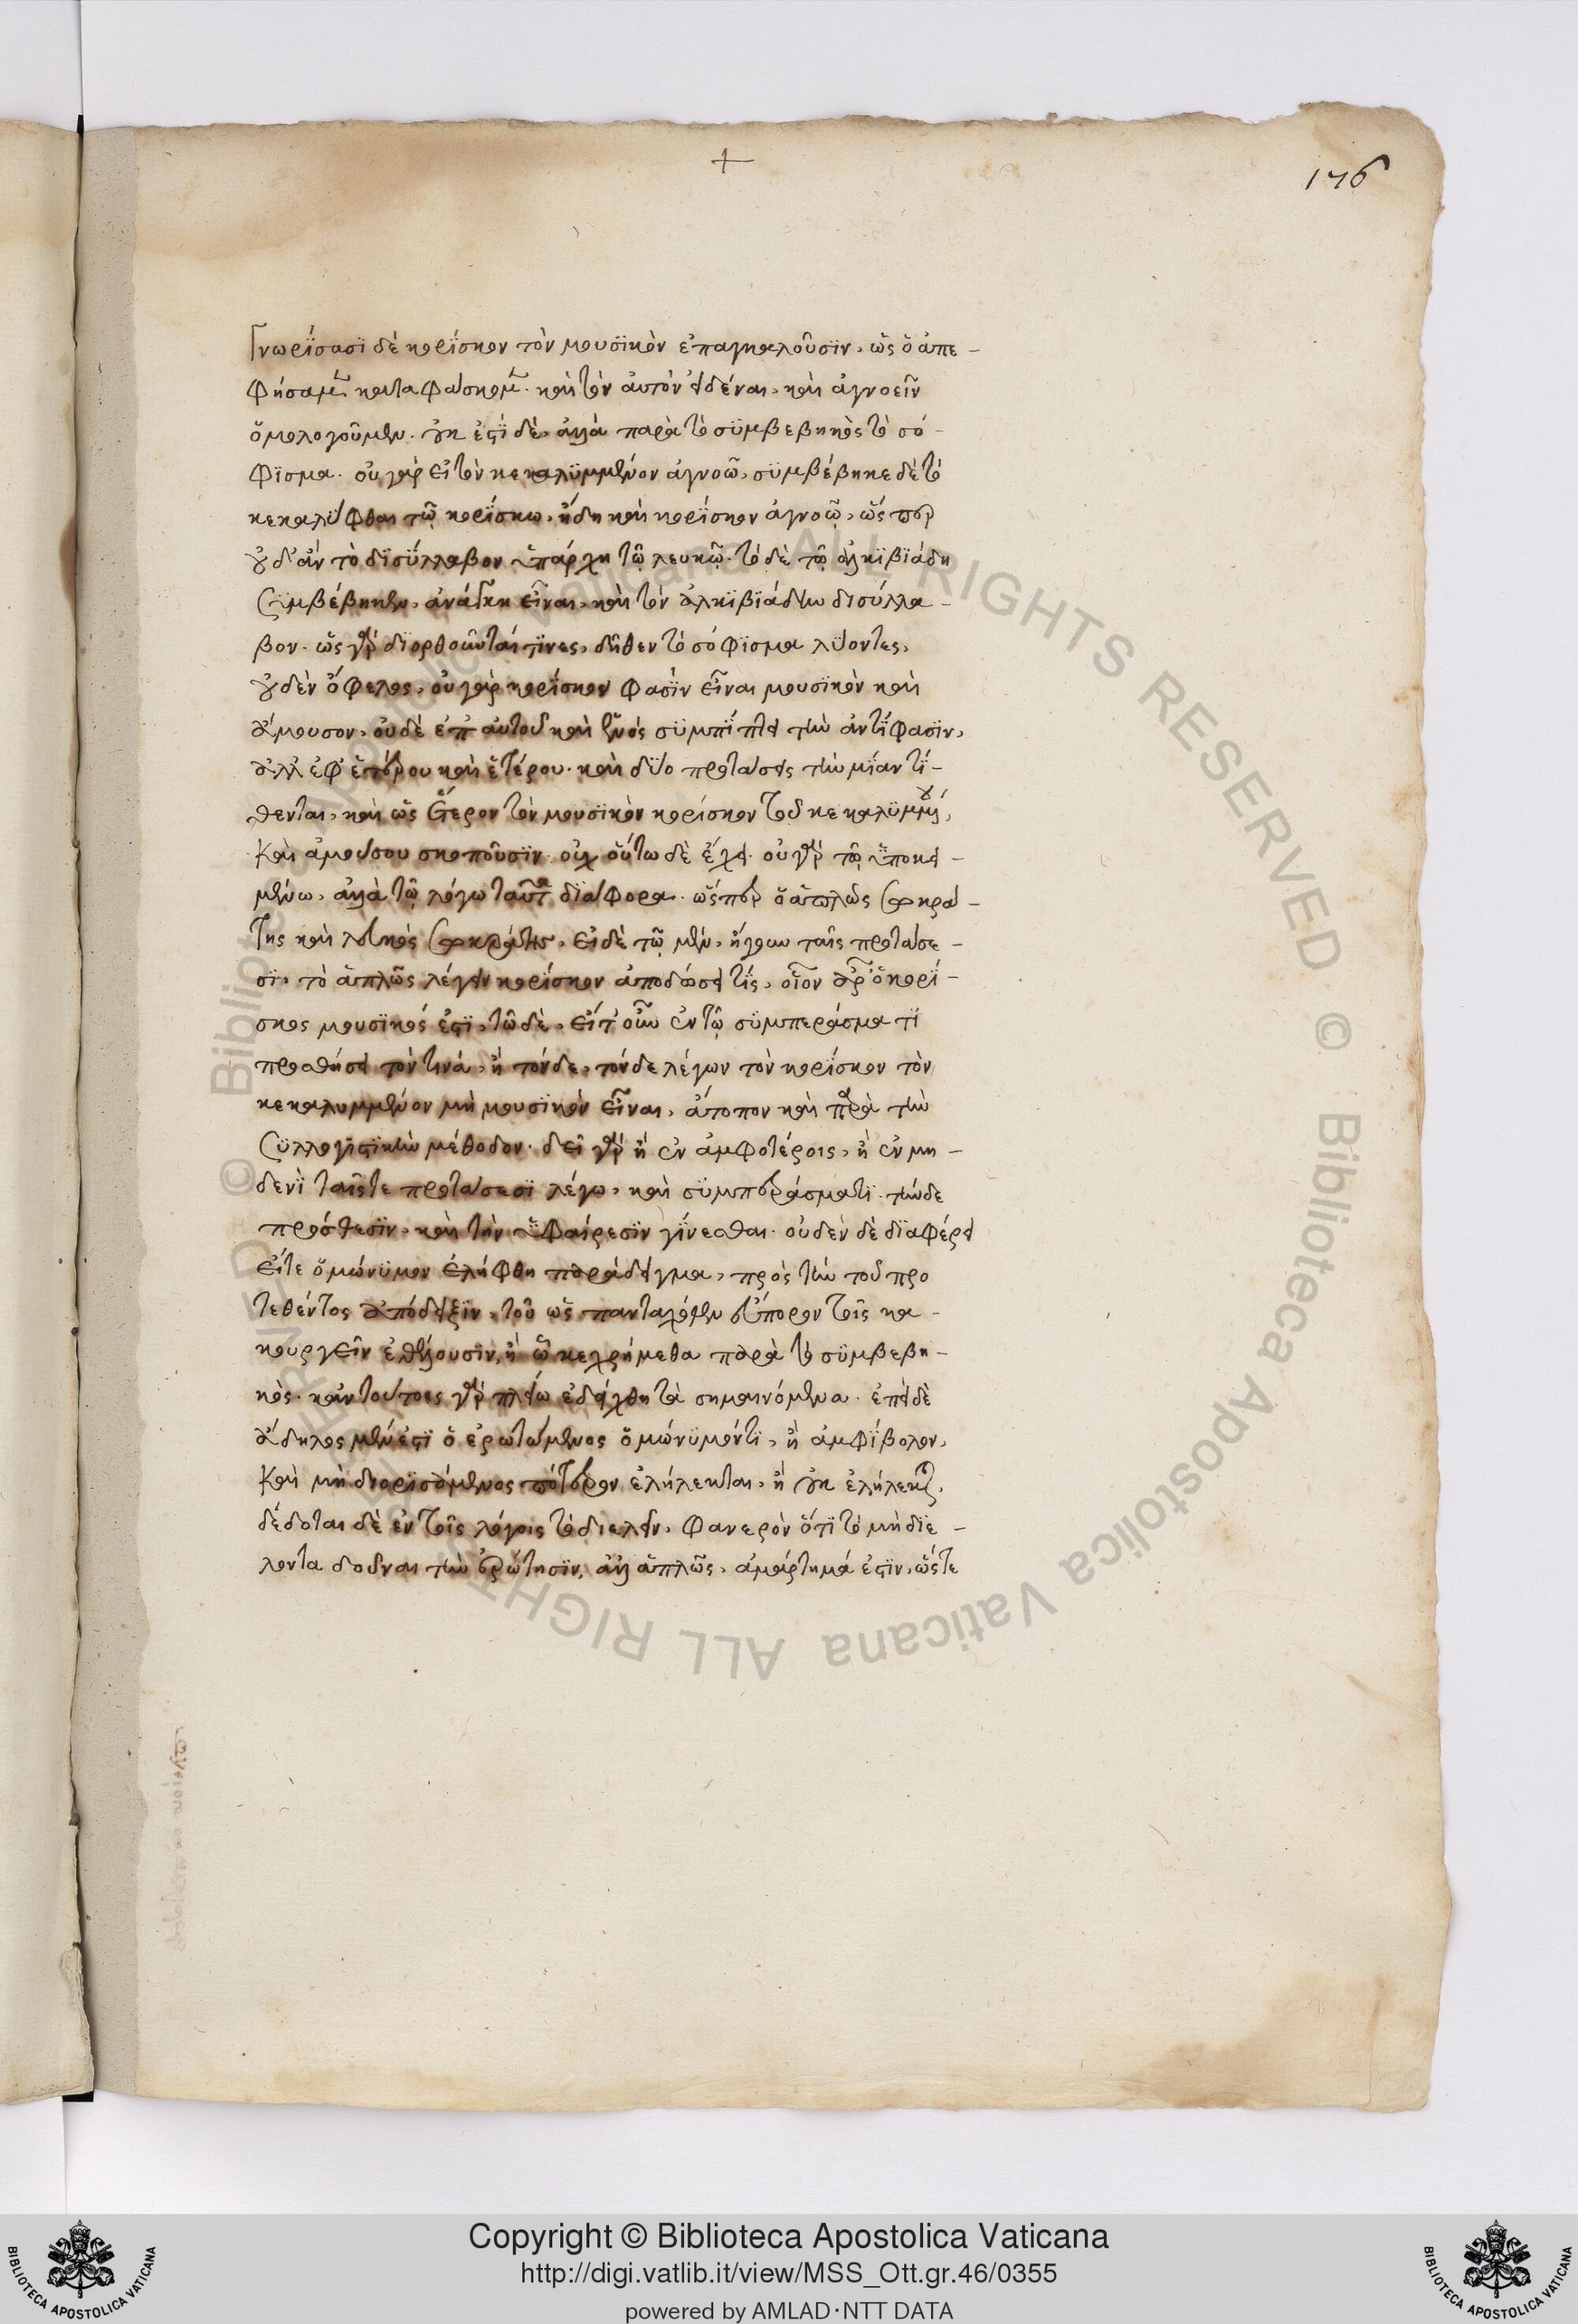 +
176
Γνωρίσασϊ δὲ κορίσκον τὸν μουσϊκὸν ἐπαγκαλοῦσϊν, ὡς ὃ ἀπε-
φήσαμεν καταφάσκομεν. καὶ τὸν αὐτὸν εἰδέναι, καὶ ἀγνοεῖν
ὁμολογοῦμεν. οὐκ ἐστϊ δὲ, ἀλλὰ παρὰ τὸ συμβεβηκὸς τὸ σό-
φϊσμα. οὐ γὰρ εἰ τὸν κεκαλυμμένον ἀγνοῶ, συμβέβηκε δὲ τὸ
κεκαλύφθαι τῷ κορίσκω, ἤδη καὶ κορίσκον ἀγνοῶ, ὥς περ
οὐδ' ἂν τὸ δϊσύλλαβον ὑπάρχη τῷ λευκῷ. τὸ δὲ τῷ ἀλκϊβϊάδη
συμβέβηκεν, ἀνάγκη εἶναι, καὶ τὸν ἀλκϊβϊάδην δισύλλα-
βον. ὡς γὰρ διορθοῦνταί τϊνες, δῆθεν τὸ σόφϊσμα λύοντες,
οὐδὲν ὄφελος, οὐ γὰρ κορίσκον φασϊν εἶναι μουσϊκὸν καὶ
ἄμουσον, οὐδὲ ἐπ' αὐτοῦ καὶ ἑνὸς συμπίπτει τὴν ἀντίφασϊν,
ἀλλ' ἐφ' ἑτέρου καὶ ἑτέρου. καὶ δύο προτάσεις τὴν μίαν τί-
θενται, καὶ ὡς ἕτερον τὸν μουσϊκὸν κορίσκον τοῦ κεκαλυμμένου,
καὶ ἀμούσου σκοποῦσϊν. οὐχ οὕτω δὲ ἔχει. οὐ γὰρ τῷ ὑποκει-
μένω, ἀλλὰ τῷ λόγω ταῦτα διάφορα. ὥςπερ ὁ ἁπλῶς σωκρά-
της καὶ λευκὸς σωκράτης, εἰ δὲ τῷ μὲν, ἤγουν ταῖς προτάσε-
σϊ, τὸ ἁπλῶς λέγειν κορίσκον ἀποδώσει τίς, οἷον ἆρ' ὁ κορί-
σκος μουσϊκός ἐστϊ, τῷ δὲ, εἴτ' οὖν ἐν τῷ συμπεράσματϊ
προσθήσει τὸν τινὰ, ἢ τόνδε, τόνδε λέγων τὸν κορίσκον τὸν
κεκαλυμμένον μὴ μουσϊκὸν εἶναι, ἄτοπον καὶ παρὰ τὴν
συλλογϊστικὴν μέθοδον. δεῖ γὰρ ἢ ἐν ἀμφοτέροις, ἢ ἐν μη-
δενὶ ταῖς τε προτάσεσϊ λέγω, καὶ συμπεράσματϊ. τήνδε
πρόσθεσϊν, καὶ τὴν ὑφαίρεσϊν γίνεσθαι. οὐδὲν δὲ διαφέρει
εἴτε ὁμώνυμον ἐλήφθη παράδειγμα, πρὸς τὴν τοῦ προ
τεθέντος ἀπόδειξϊν, τοῦ ὡς πανταχόθεν εὔπορον τοῖς κα-
κουργεῖν ἐθέλουσϊν, ἢ ᾧ κεχρήμεθα παρὰ τὸ συμβεβη-
κὸς. κἀν τούτοις γὰρ πλείω ἐδείχθη τὰ σημαινόμενα. ἐπεὶ δὲ
ἄδηλος μέν ἐστϊ ὁ ἐρωτώμενος ὁμώνυμόν τϊ, ἢ ἀμφίβολον,
καὶ μὴ διορισάμενος πότερον ἐλήλεκται, ἢ οὐκ ἐλήλεκται,
δέδοται δὲ ἐν τοῖς λόγοις τὸ διελεῖν, φανερὸν ὅτϊ τὸ μὴ διε-
λόντα δοῦναι τὴν ἐρώτησϊν, ἀλλ' ἁπλῶς, ἁμάρτημά ἐστϊν, ὥςτε
Copyright © Biblioteca Apostolica Vaticana
http://digi.vatlib.it/view/MSS_Ott.gr.46/0355
powered by AMLAD·NTT DATA